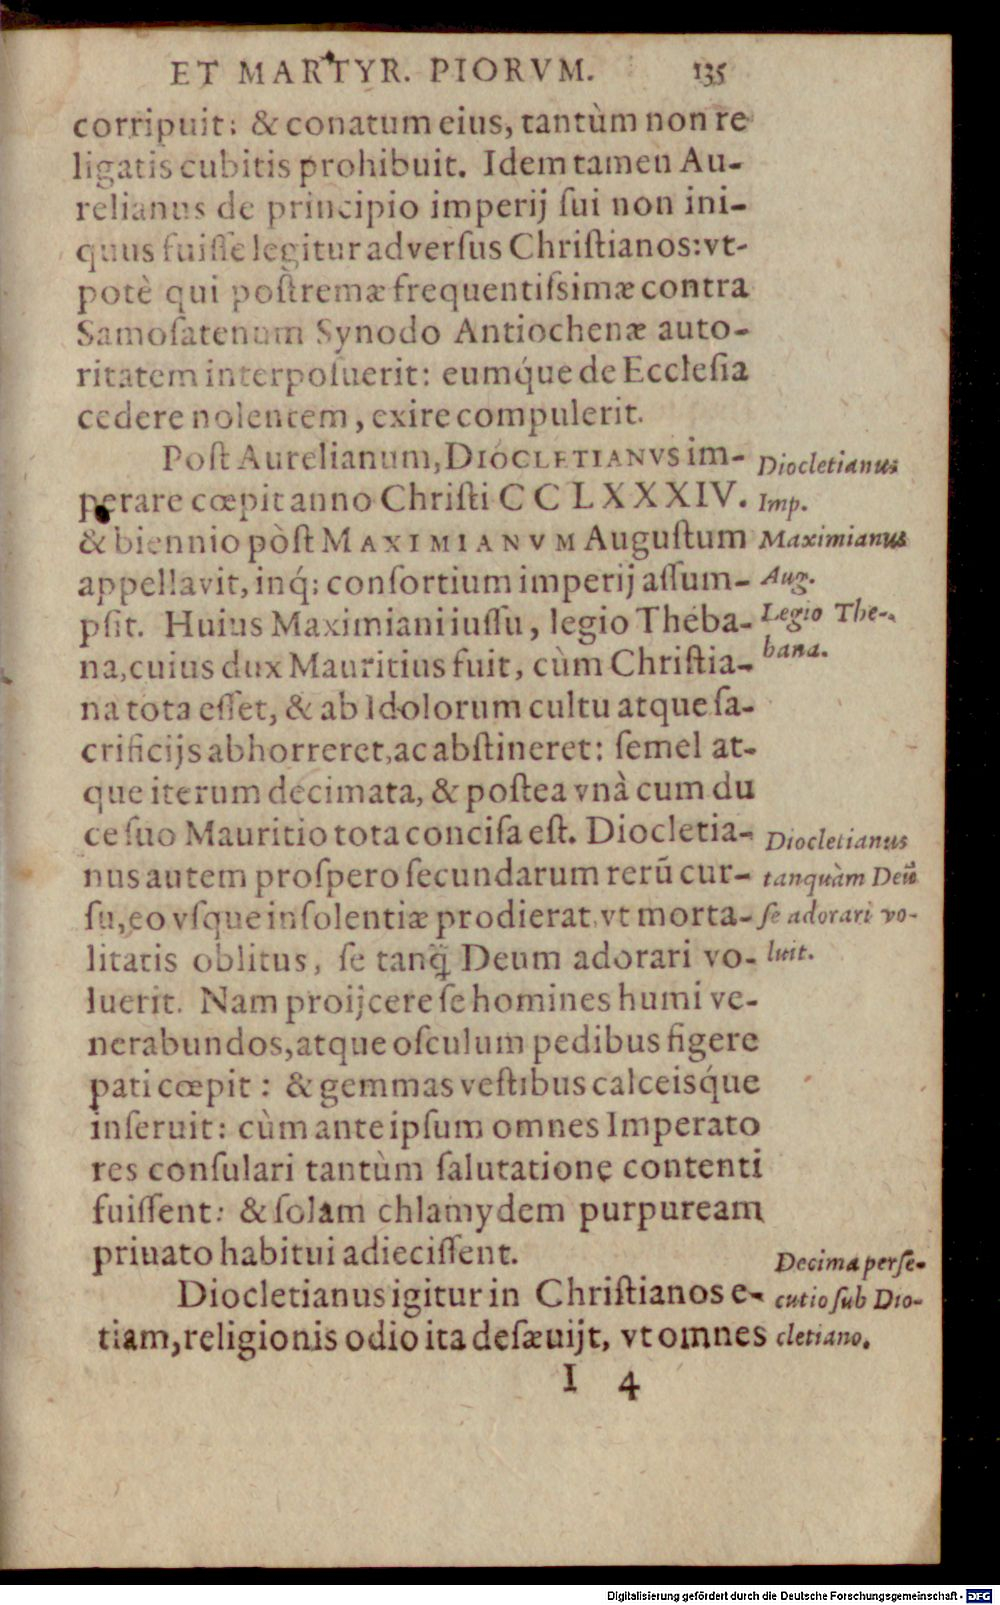 ET MARTYR. PIORVM. 135
corripuit: & conatum eius, tantùm non re
ligatis cubitis prohibuit. Idem tamen Au-
relianus de principio imperij ſui non ini-
quus fuiſſe legitur adverſus Chriſtianos: vt-
potè qui poſtremæ frequentiſsimæ contra
Samoſatenum Synodo Antiochenæ auto-
ritatem interpoſuerit: eumq́ue de Eccleſia
cedere nolentem, exire compulerit.
Poſt Aurelianum, DIOCLETIANVS im-
perare cœpit anno Chriſti CCLXXXIV.
& biennio pòſt MAXIMIANVM Auguſtum
appellavit, inq́; conſortium imperij aſſum-
pſit. Huius Maximiani iuſſu, legio Theba-
na, cuius dux Mauritius fuit, cùm Chriſtia-
na tota eſſet, & ab Idolorum cultu atque ſa-
crificijs abhorreret, ac abſtineret: ſemel at-
que iterum decimata, & poſtea vnà cum du
ce ſuo Mauritio tota conciſa eſt. Diocletia-
nus autem proſpero ſecundarum rerū cur-
ſu, eo vſque inſolentiæ prodierat, vt morta-
litatis oblitus, ſe tanq̃ Deum adorari vo-
luerit. Nam proijcere ſe homines humi ve-
nerabundos, atque oſculum pedibus figere
pati cœpit: & gemmas veſtibus calceisq́ue
inſeruit: cùm ante ipſum omnes Imperato
res conſulari tantùm ſalutatione contenti
fuiſſent: & ſolam chlamydem purpuream
priuato habitui adieciſſent.
Diocletianus igitur in Chriſtianos e-
tiam, religionis odio ita deſæuijt, vt omnes
I 4
Diocletianus
Imp.
Maximianus
Aug.
Legio The-
bana.
Diocletianus
tanquàm Deū
ſe adorari vo-
luit.
Decima perſe-
cutio ſub Dio-
cletiano.
Digitalisierung gefördert durch die Deutsche Forschungsgemeinschaft - DFG